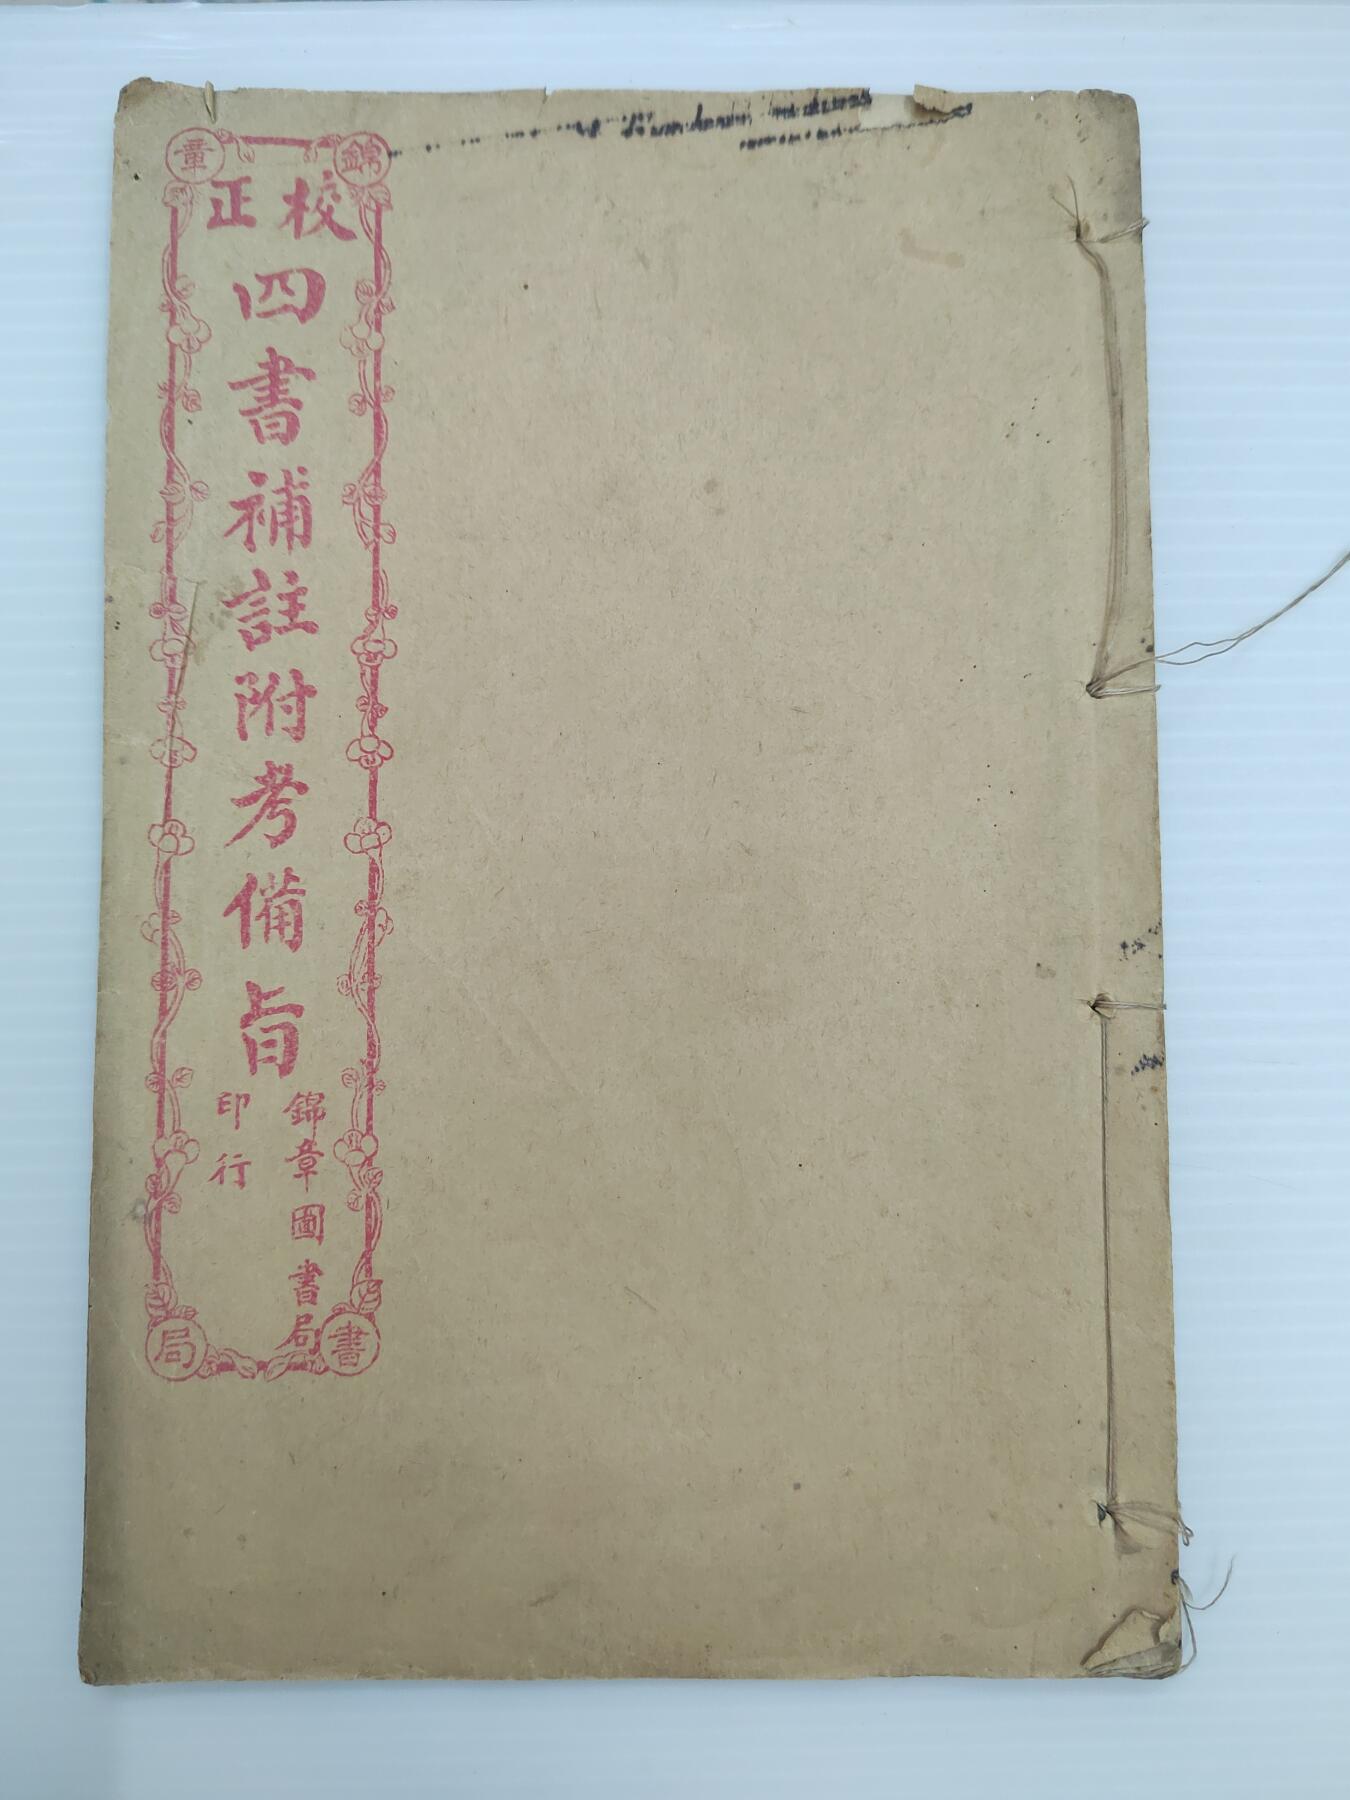 錦章
書局
校正
四書補註附考備旨
錦章圖書局
印行